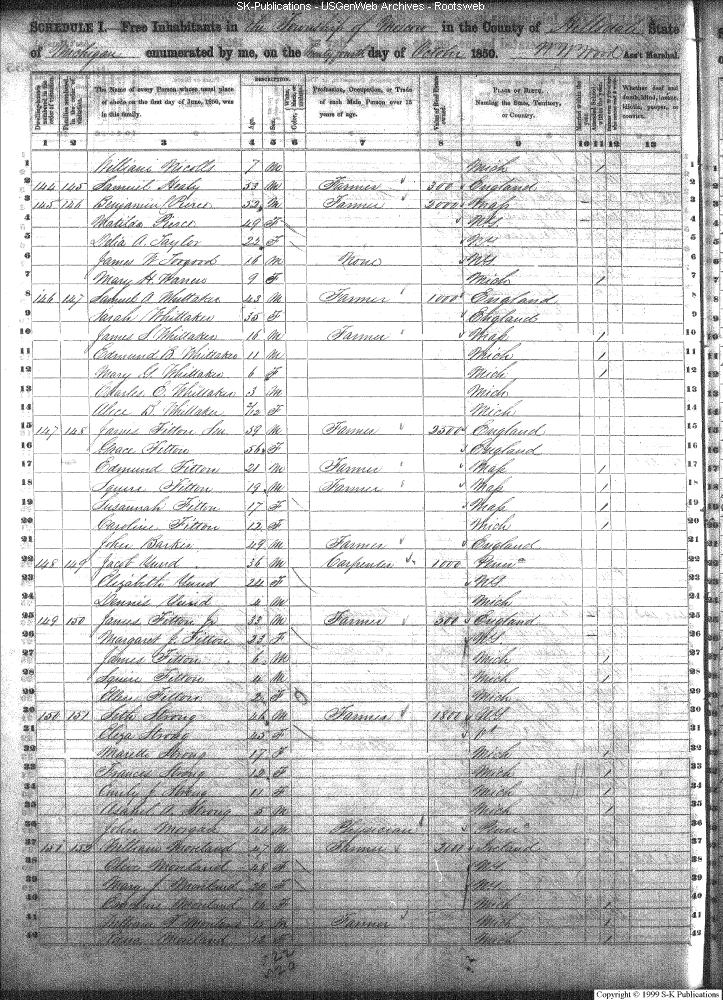 SK-Publications - USGenWeb Archives - Rootsweb
SCHEDULE I. Free Inhabitants in the Township of in the County of Hillsdale State
of Michigan enumerated by me, on the day of October 1850. Ass't Marshal.
Dwelling-houses numbered in the order of visitation. Families numbered in the order of visitation. The Name of every Person whose usual place of abode on the first day of June, 1850, was in this family. DESCRIPTION. Age. Sex. Color, White, Profession, Occupation, or Trade of each Male Person over 15 years of age. Value of Real Estate owned. PLACE OF BIRTH. Naming the State, Territory, or Country. Married within the year. Whether deaf and dumb, blind, insane, idiotic, pauper, or convict.
1 2 3 4 5 6 7 8 9 10 11 12 13
1 William Nicolls 7 M Mich 1
2 144 145 Samuel Healy 53 M Farmer 300 England
3 145 146 Benjamin Pierce 52 M Farmer 2000 Mass
4 Matilda Pierce 49 F NY
5 Delia A. Taylor 22 F NY
6 James W. 16 M None NY
7 Mary H. Warren 9 F Mich 1
8 146 147 Samuel A Whittaker 43 M Farmer 1000 England
9 Sarah Whittaker 35 F England
10 James S. Whittaker 16 M Farmer Mass 1
11 Edmund B. Whittaker 11 M Mich 1
12 Mary G. Whittaker 6 F Mich 1
13 Charles C. Whittaker 3 M Mich
14 Alice D. Whittaker /12 F Mich
15 147 148 James Fitton Sen 59 M Farmer 2500 England
16 Grace Fitton 56 F England
17 Edmund Fitton 21 M Farmer Mass 1
18 Squire Fitton 19 M Farmer Mass 1
19 Susannah Fitton 17 F Mass 1
20 Caroline Fitton 12 F Mich 1
21 John Barker 49 M Farmer England
22 148 149 Jacob 36 M Carpenter 1000 Penn
23 Elizabeth 24 F NY
24 Dennis 4 M Mich
25 149 150 James Fitton Jr 33 M Farmer 500 England
26 Margaret J. Fitton 23 F NY
27 James Fitton 6 M Mich 1
28 Squire Fitton 4 M Mich 1
29 Fitton 2 F Mich
30 150 151 Seth Strong 46 M Farmer 1800 NY
31 Eliza Strong 45 F
32 Strong 17 F Mich 1
33 Frances Strong 12 F Mich 1
34 Emily J. Strong 11 F Mich 1
35 Asahel A. Strong 5 M Mich 1
36 John Morgan 44 M Physician Penn
37 151 152 William Moreland 47 M Farmer Ireland
38 Olive Moreland 48 F NY
39 Mary J Moreland 20 F NY
40 Caroline Moreland 16 F Mich 1
41 William Moreland 15 M Farmer Mich 1
42 Moreland 12 F Mich 1
Copyright © 1999 S-K Publications